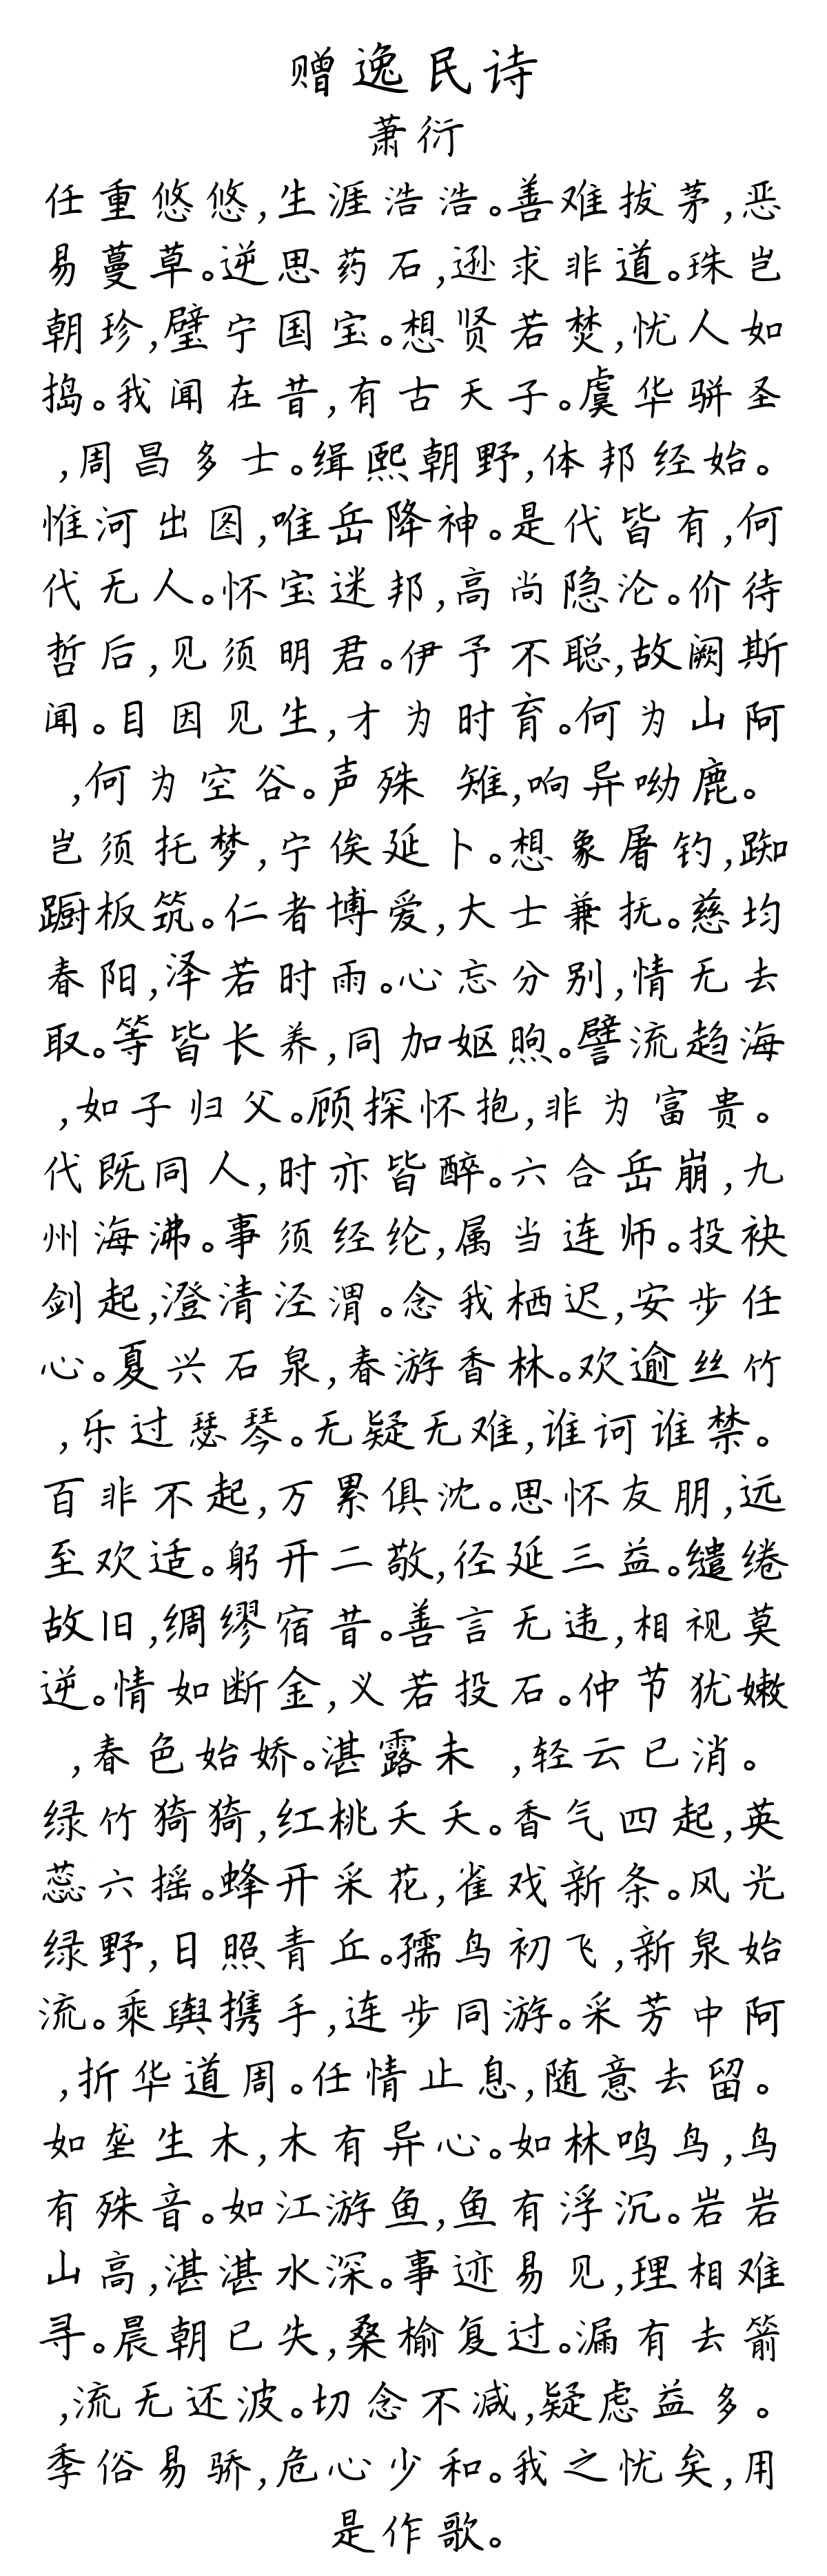 赠逸民诗
萧衍
任重悠悠,生涯浩浩。善难拔茅,恶
易蔓草。逆思药石,逊求非道。珠岂
朝珍,璧宁国宝。想贤若焚,忧人如
捣。我闻在昔,有古天子。虞华骈圣
,周昌多士。缉熙朝野,体邦经始。
惟河出图,唯岳降神。是代皆有,何
代无人。怀宝迷邦,高尚隐沦。价待
哲后,见须明君。伊予不聪,故阙斯
闻。目因见生,才为时育。何为山阿
,何为空谷。声殊 雉,响异呦鹿。
岂须托梦,宁俟延卜。想象屠钓,踟
蹰板筑。仁者博爱,大士兼抚。慈均
春阳,泽若时雨。心忘分别,情无去
取。等皆长养,同加妪煦。譬流趋海
,如子归父。顾探怀抱,非为富贵。
代既同人,时亦皆醉。六合岳崩,九
州海沸。事须经纶,属当连师。投袂
剑起,澄清泾渭。念我栖迟,安步任
心。夏兴石泉,春游香林。欢逾丝竹
,乐过瑟琴。无疑无难,谁诃谁禁。
百非不起,万累俱沈。思怀友朋,远
至欢适。躬开二敬,径延三益。缱绻
故旧,绸缪宿昔。善言无违,相视莫
逆。情如断金,义若投石。仲节犹嫩
,春色始娇。湛露未 ,轻云已消。
绿竹猗猗,红桃夭夭。香气四起,英
蕊六摇。蜂开采花,雀戏新条。风光
绿野,日照青丘。孺鸟初飞,新泉始
流。乘舆携手,连步同游。采芳中阿
,折华道周。任情止息,随意去留。
如垄生木,木有异心。如林鸣鸟,鸟
有殊音。如江游鱼,鱼有浮沉。岩岩
山高,湛湛水深。事迹易见,理相难
寻。晨朝已失,桑榆复过。漏有去箭
,流无还波。切念不减,疑虑益多。
季俗易骄,危心少和。我之忧矣,用
是作歌。